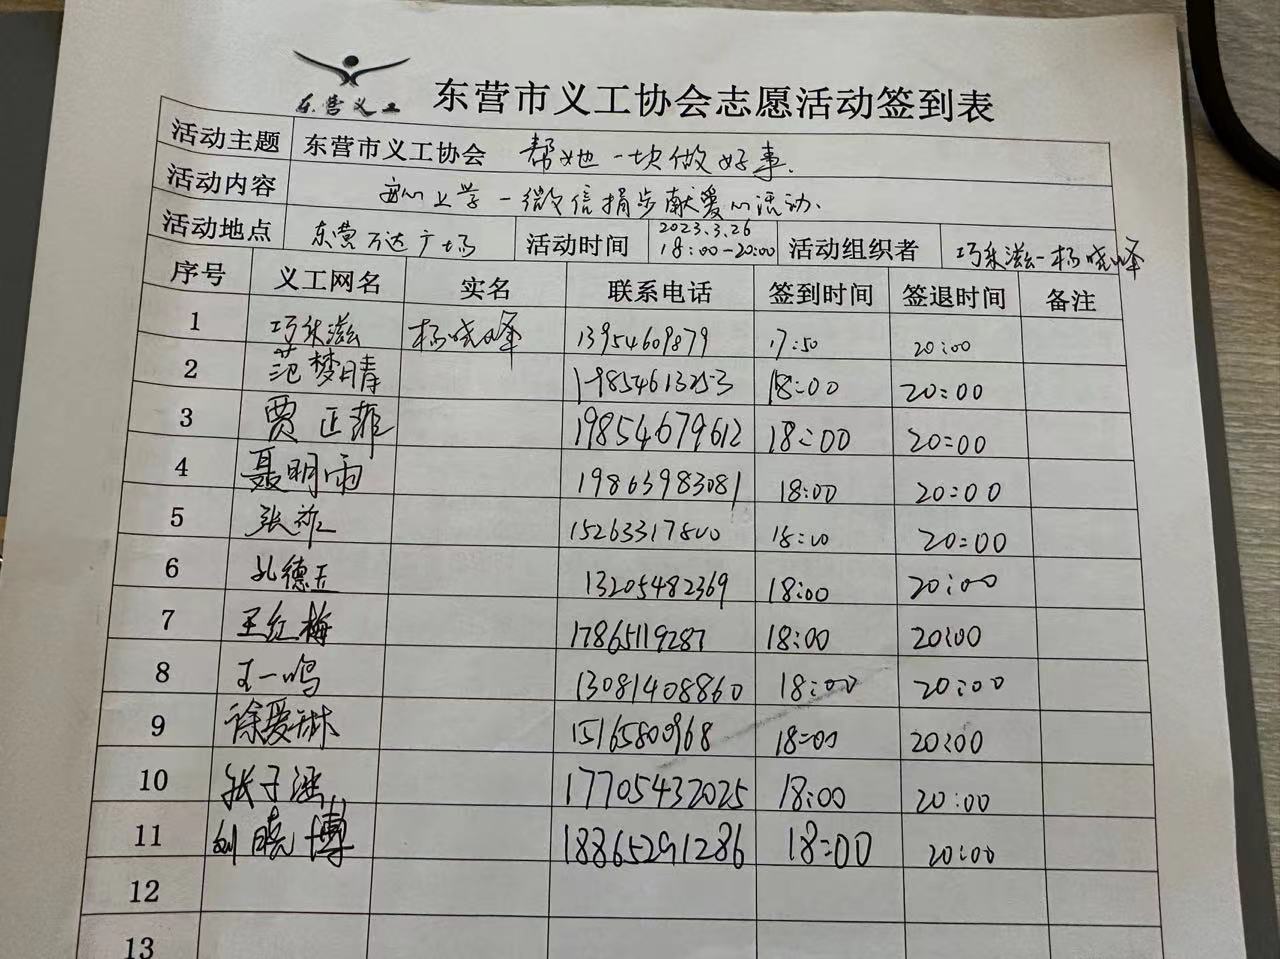 东营义工
东营市义工协会志愿活动签到表
活动主题 东营市义工协会 帮她一块做好事.
活动内容 安心上学-微信捐步献爱心活动.
活动地点 东营万达广场 活动时间 2023.3.26 18:00-20:00 活动组织者 巧朱滋-杨晓峰
序号 义工网名 实名 联系电话 签到时间 签退时间 备注
1 杨晓峰 13954609879 17:50 20:00
2 范梦晴 19854613253 18:00 20:00
3 贾正菲 19854679612 18:00 20:00
4 聂明雨 19863983081 18:00 20:00
5 张 15263317800 18:00 20:00
6 孔德玉 13205482369 18:00 20:00
7 王红梅 17865119287 18:00 20:00
8 王一鸣 13081408860 18:00 20:00
9 徐爱琳 15165800968 18:00 20:00
10 张子涵 17705432025 18:00 20:00
11 刘晓博 18865291286 18:00 20:00
12
13